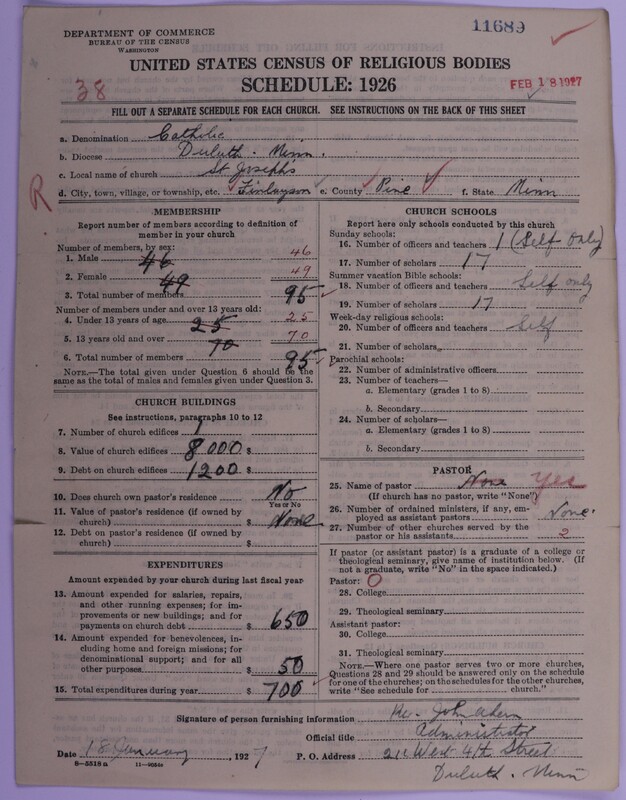 11689
DEPARTMENT OF COMMERCE
BUREAU OF THE CENSUS
WASHINGTON
UNITED STATES CENSUS OF RELIGIOUS BODIES
38
SCHEDULE: 1926
FEB 18 1927
FILL OUT A SEPARATE SCHEDULE FOR EACH CHURCH. SEE INSTRUCTIONS ON THE BACK OF THIS SHEET
a. Denomination Catholic
b. Diocese Duluth - Minn.
c. Local name of church St Joseph's
d. City, town, village, or township, etc. Finlayson e. County Pine f. State Minn
R
MEMBERSHIP
Report number of members according to definition of
member in your church
Number of members, by sex:
1. Male 46 46
2. Female 49 49
3. Total number of members 95
Number of members under and over 13 years old:
4. Under 13 years of age 25 25
5. 13 years old and over 70 70
6. Total number of members 95
NOTE.—The total given under Question 6 should be the
same as the total of males and females given under Question 3.
CHURCH BUILDINGS
See instructions, paragraphs 10 to 12
7. Number of church edifices 1
8. Value of church edifices 8000 $
9. Debt on church edifices 1200 $
10. Does church own pastor's residence No
Yes or No
11. Value of pastor's residence (if owned by
church) $ None
12. Debt on pastor's residence (if owned by
church) $
EXPENDITURES
Amount expended by your church during last fiscal year
13. Amount expended for salaries, repairs,
and other running expenses; for im-
provements or new buildings; and for
payments on church debt $ 650
14. Amount expended for benevolences, in-
cluding home and foreign missions; for
denominational support; and for all
other purposes $ 50
15. Total expenditures during year $ 700
CHURCH SCHOOLS
Report here only schools conducted by this church
Sunday schools:
16. Number of officers and teachers 1 (Self only)
17. Number of scholars 17
Summer vacation Bible schools:
18. Number of officers and teachers Self only
19. Number of scholars 17
Week-day religious schools:
20. Number of officers and teachers Self
21. Number of scholars
Parochial schools:
22. Number of administrative officers
23. Number of teachers—
a. Elementary (grades 1 to 8)
b. Secondary
24. Number of scholars—
a. Elementary (grades 1 to 8)
b. Secondary
PASTOR
25. Name of pastor None Yes
(If church has no pastor, write "None")
26. Number of ordained ministers, if any, em-
ployed as assistant pastors None.
27. Number of other churches served by the
pastor or his assistants 2
If pastor (or assistant pastor) is a graduate of a college or
theological seminary, give name of institution below. (If
not a graduate, write "No" in the space indicated.)
Pastor: O
28. College
29. Theological seminary
Assistant pastor:
30. College
31. Theological seminary
NOTE.—Where one pastor serves two or more churches,
Questions 28 and 29 should be answered only on the schedule
for one of the churches; on the schedules for the other churches,
write "See schedule for church."
Signature of person furnishing information Rev. John Ahern
Official title Administrator
Date 18 January, 1927 P. O. Address 211 West 4th Street
8-5518a 11-9024a Duluth - Minn